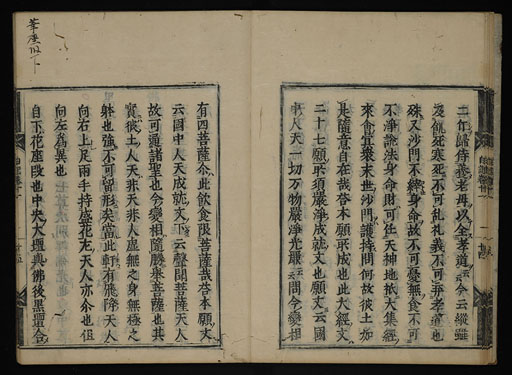 二作歸侍養老母以全孝道云今云縱雖
受飢死寒死不可乱礼義不可弃孝道也
殊又沙門不繞身命故不可憂無食不可
不淨說法身命財可任天神地祇大集經
來會冝衆末世沙門護持問何故彼土加
是隨意自在哉荅本願所成也此大經文
二十七願所須嚴淨成就文也願文云國
中人天一切万物嚴淨光麗云問今變相
有四菩薩尒此飲食限菩薩哉荅本願文
云國中人天成就文下云聲聞菩薩天人
故可通諸聖也今變相隨勝舉菩薩也
實彼土人天非天非人虛無之身無極之
躰也強不可留形矣當此軒有飛降天人
向右上足兩手持盛花充天人亦今也但
向左爲異也
自下花座段也中央大壇與佛後黑置合
華座以下